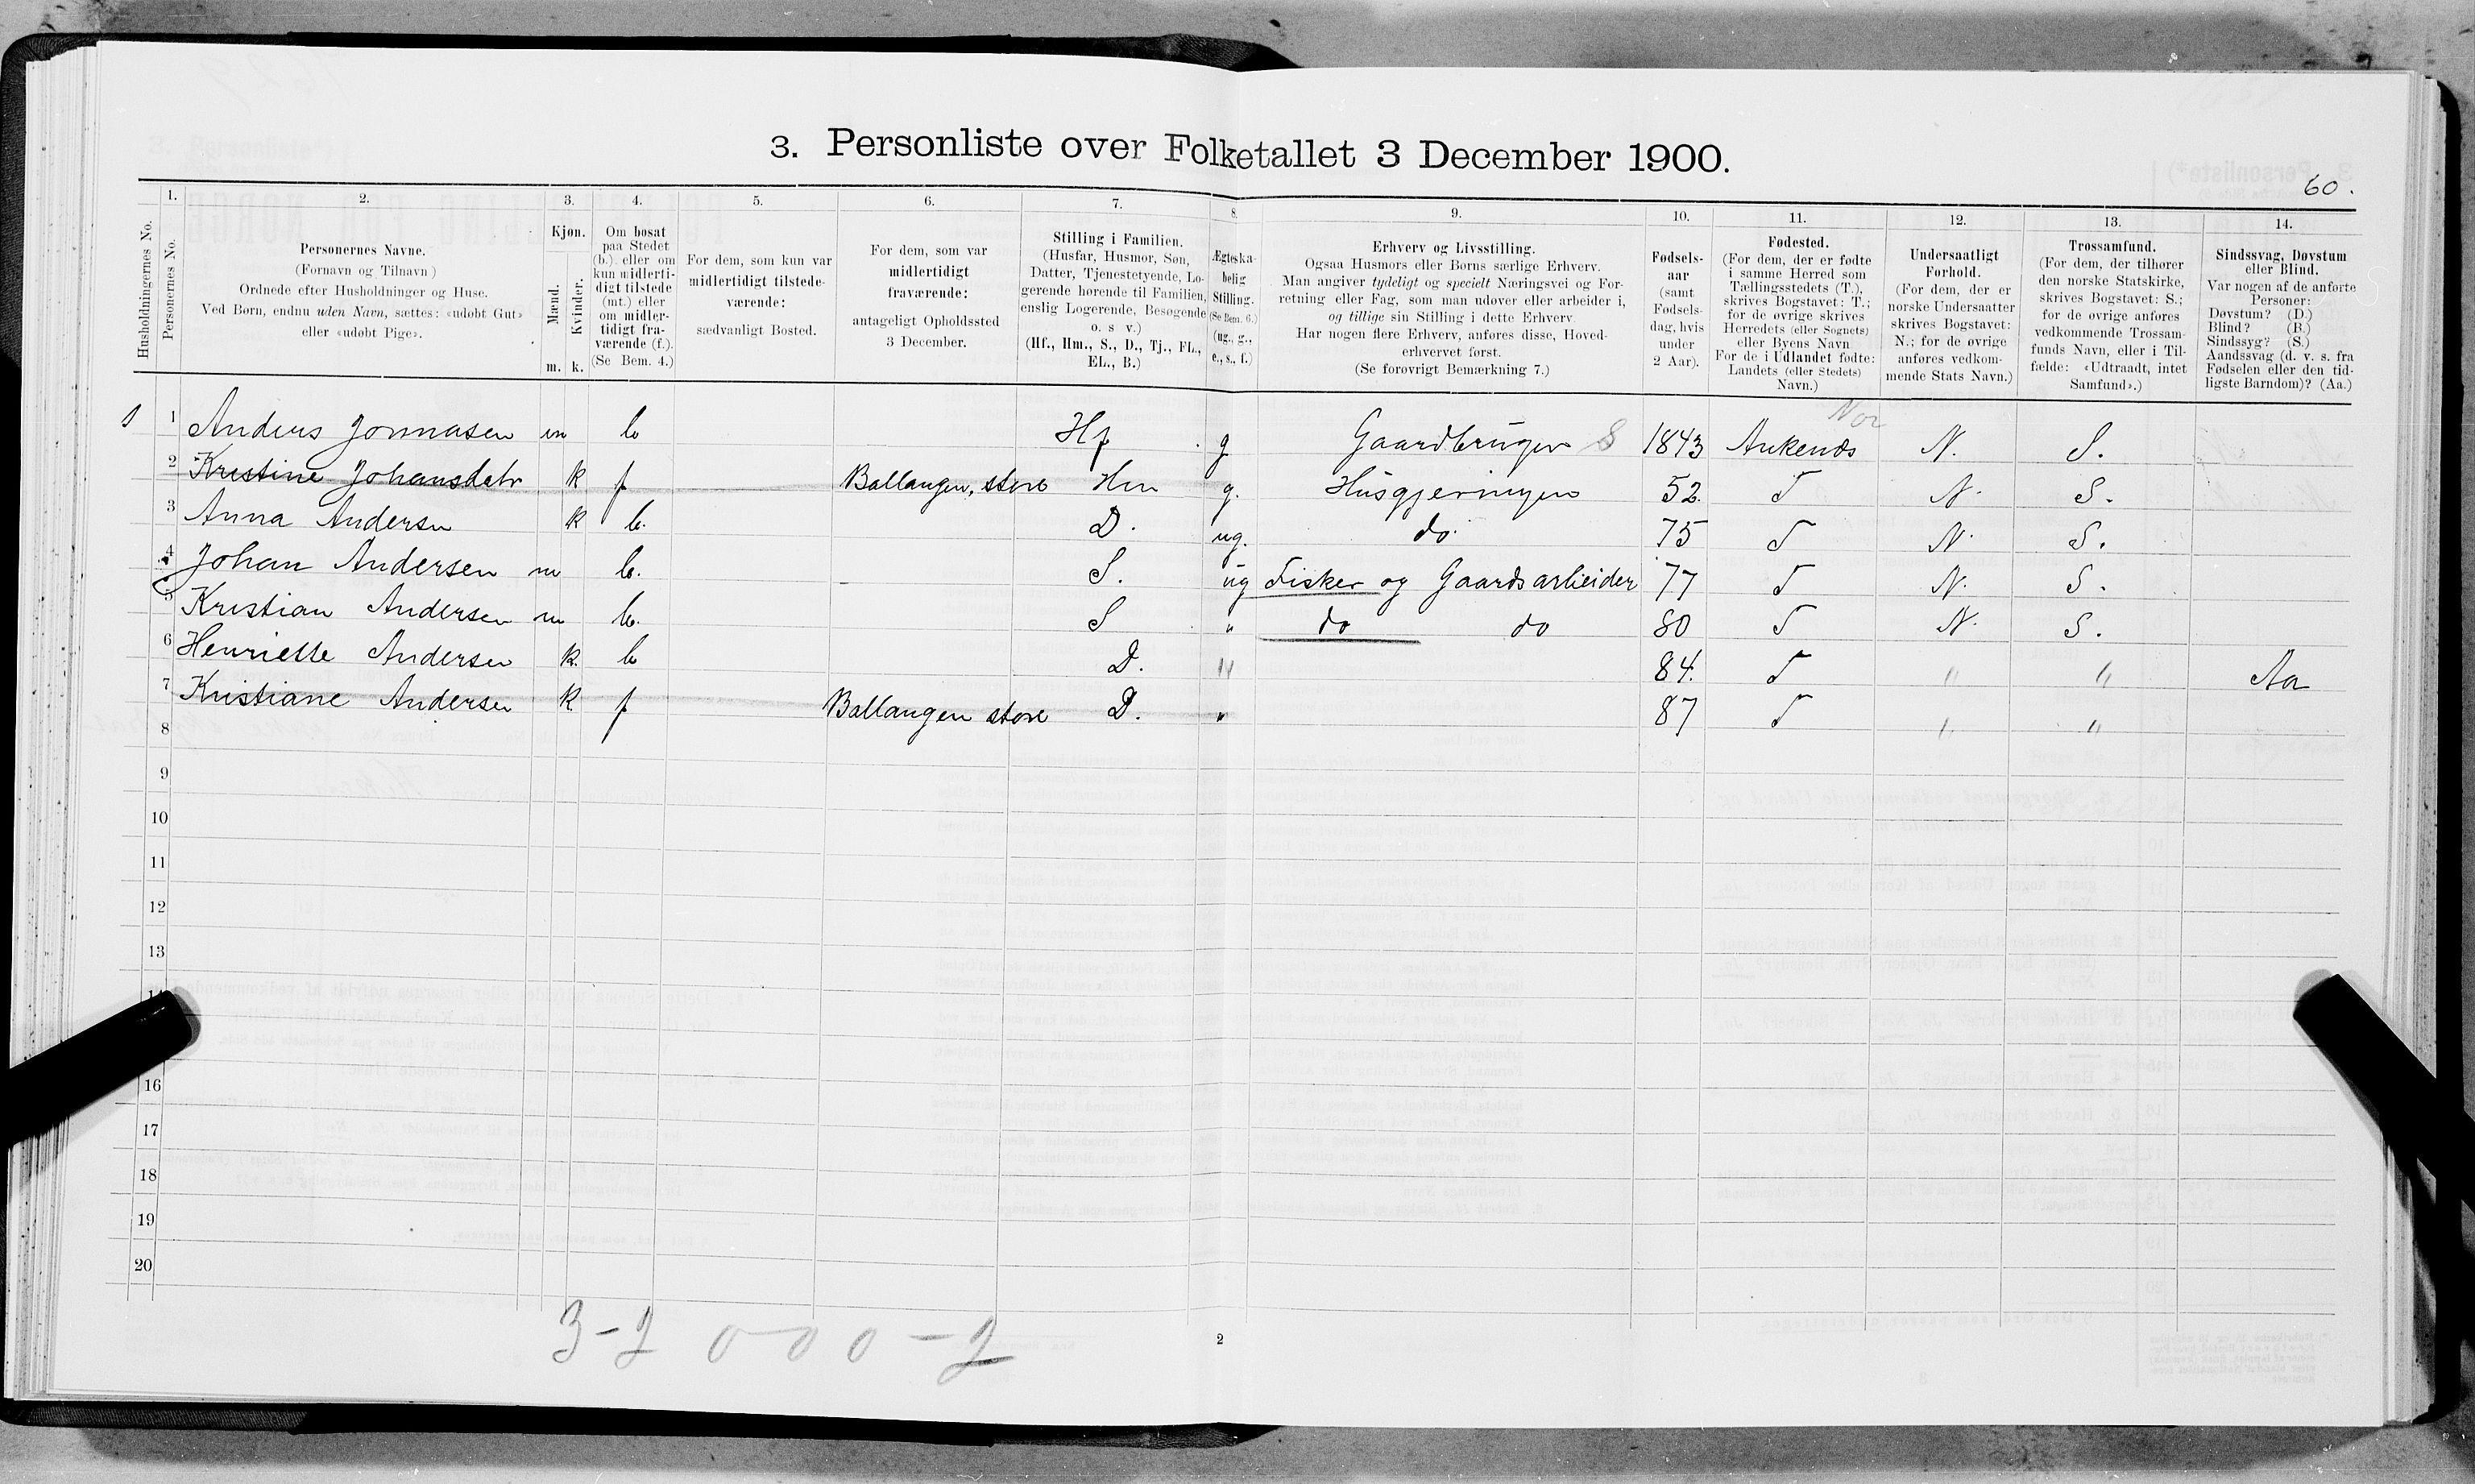 3. Personliste over Folketallet 3 December 1900.
60.
Husholdningernes No.
1.
Personernes No.
2.
Personernes Navne.
(Fornavn og Tilnavn)
Ordnede efter Husholdninger og Huse.
Ved Børn, endnu uden Navn, sættes: «udøbt Gut»
eller «udøbt Pige».
3.
Kjøn.
Mænd.
Kvinder.
m. k.
4.
Om bosat
paa Stedet
(b.) eller om
kun midlerti-
digt tilstede
(mt.) eller
om midler-
tidigt fra-
værende (f.).
(Se Bem. 4.)
5.
For dem, som kun var
midlertidigt tilstede-
værende:
sædvanligt Bosted.
6.
For dem, som var
midlertidigt
fraværende:
antageligt Opholdssted
3 December.
7.
Stilling i Familien.
(Husfar, Husmor, Søn,
Datter, Tjenestetyende, Lo-
gerende hørende til Familien,
enslig Logerende, Besøgende
o. s v.)
(Hf., Hm., S., D., Tj., FL.,
EL., B.)
8.
Ægteska-
belig
Stilling.
(Se Bem. 6.)
(ug., g.,
e., s., f.)
9.
Erhverv og Livsstilling.
Ogsaa Husmors eller Børns særlige Erhverv.
Man angiver tydeligt og specielt Næringsvei og For-
retning eller Fag, som man udøver eller arbeider i,
og tillige sin Stilling i dette Erhverv.
Har nogen flere Erhverv, anføres disse, Hoved-
erhvervet først.
(Se forøvrigt Bemærkning 7.)
10.
Fødsels-
aar
(samt
Fødsels-
dag, hvis
under
2 Aar).
11.
Fødested.
(For dem, der er fødte
i samme Herred som
Tællingsstedets (T.),
skrives Bogstavet: T.;
for de øvrige skrives
Herredets (eller Sognets)
eller Byens Navn
For de i Udlandet fødte:
Landets (eller Stedets)
Navn.)
12.
Undersaatligt
Forhold.
(For dem, der er
norske Undersaatter
skrives Bogstavet:
N.; for de øvrige
anføres vedkom-
mende Stats Navn.)
13.
Trossamfund.
(For dem, der tilhører
den norske Statskirke,
skrives Bogstavet: S.;
for de øvrige anføres
vedkommende Trossam-
funds Navn, eller i Til-
fælde: «Udtraadt, intet
Samfund».)
14.
Sindssvag, Døvstum
eller Blind.
Var nogen af de anførte
Personer:
Døvstum? (D.)
Blind? (B.)
Sindssyg? (S.)
Aandssvag (d. v. s. fra
Fødselen eller den tid-
ligste Barndom)? (Aa.)
Nor
1 1 Anders Jonnasen m b Hf g Gaardbruger S 1843 Ankenes N. S.
2 Kristine Johansdatr k f Ballangen, store Hm g. Husgjerningen 52 T N. S.
3 Anna Andersen k b. D. ug. do. 75 T N. S.
4 Johan Andersen m b. S. ug Fisker og Gaardsarbeider 77 T N. S.
5 Kristian Andersen m b. S " do do 80 T N. S.
6 Henriette Andersen k. b D. " 84. T " " Aa
7 Kristiane Andersen k f Ballangen store D. " 87 T " "
8
9
10
11
12
13
14
16
17
18
19
20
3-2 0 0 0 - 2
2